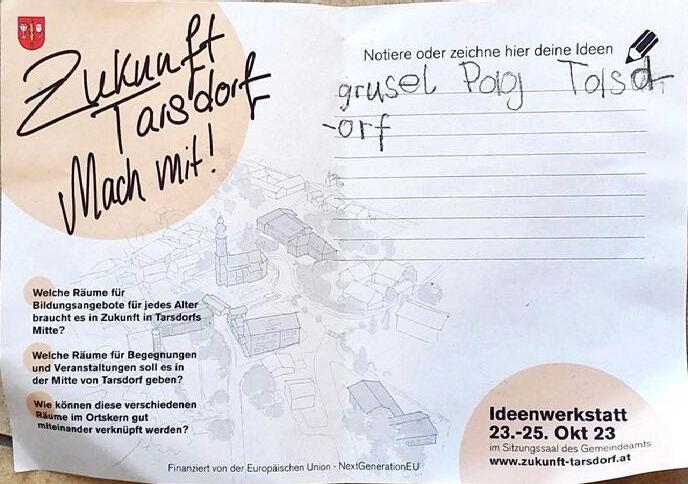 Zukunft
Tarsdorf
Mach mit!
Notiere oder zeichne hier deine Ideen
grusel Parg Tarsd
-orf
Welche Räume für
Bildungsangebote für jedes Alter
braucht es in Zukunft in Tarsdorfs
Mitte?
Welche Räume für Begegnungen
und Veranstaltungen soll es in
der Mitte von Tarsdorf geben?
Wie können diese verschiedenen
Räume im Ortskern gut
miteinander verknüpft werden?
Ideenwerkstatt
23.-25. Okt 23
im Sitzungssaal des Gemeindeamts
www.zukunft-tarsdorf.at
Finanziert von der Europäischen Union - NextGenerationEU